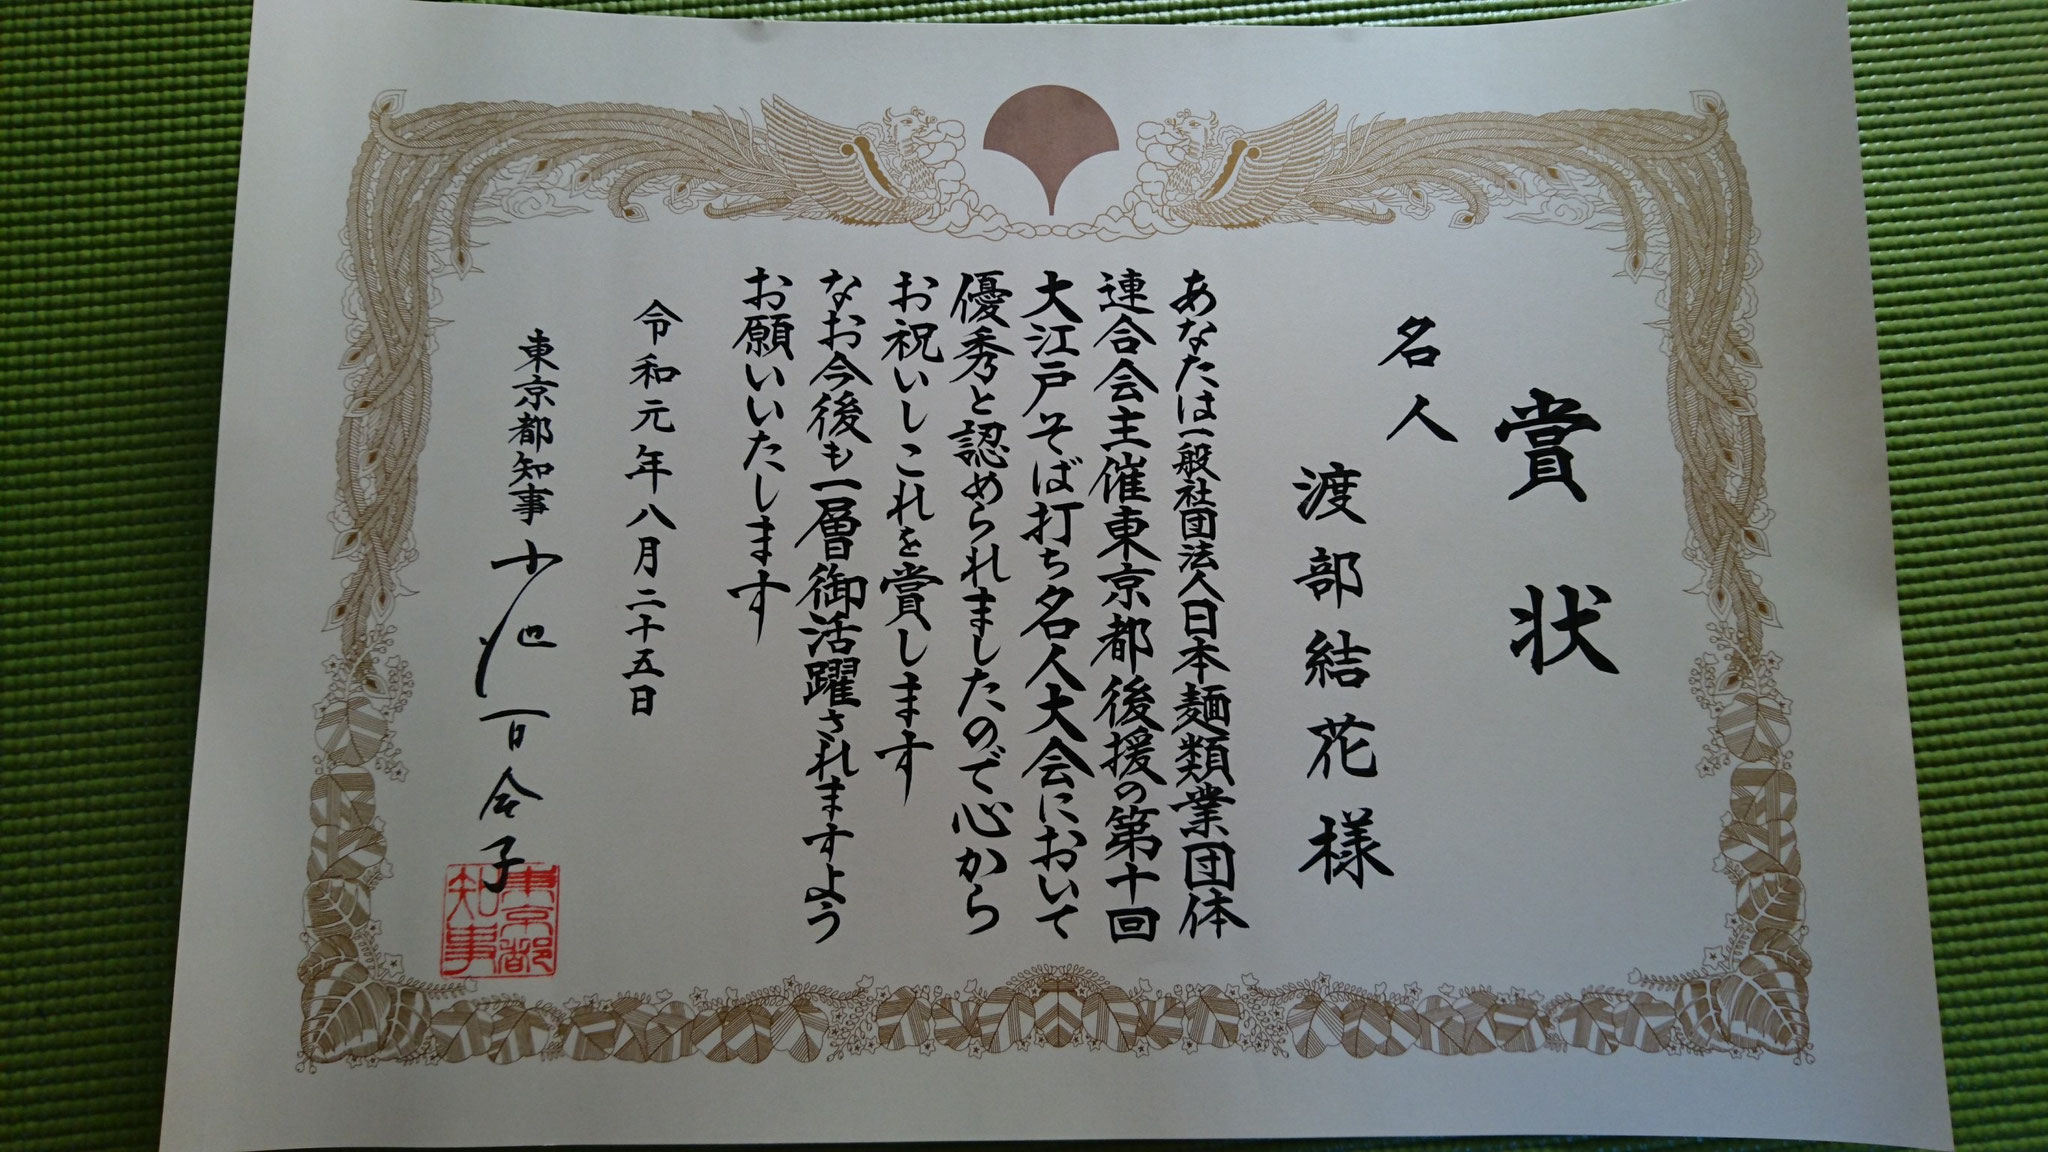 賞状
名人
渡部結花様
あなたは一般社団法人日本麺類業団体
連合会主催東京都後援の第十回
大江戸そば打ち名人大会において
優秀と認められましたので心から
お祝いしこれを賞します
なお今後も一層御活躍されますよう
お願いいたします
令和元年八月二十五日
東京都知事 小池百合子
東京都
知事